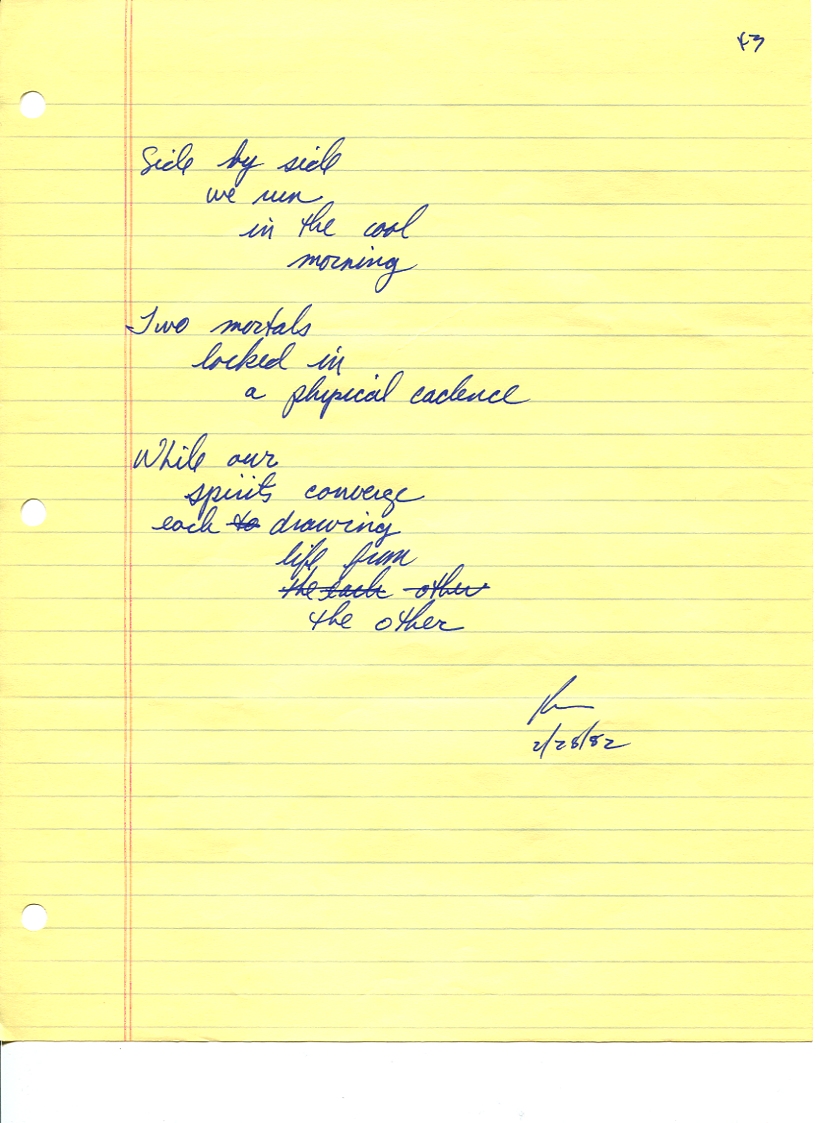 43
Side by side
we run
in the cool
morning
Two mortals
locked in
a physical cadence
While our
spirits converge
each to drawing
life from
the each other
the other
2/28/82